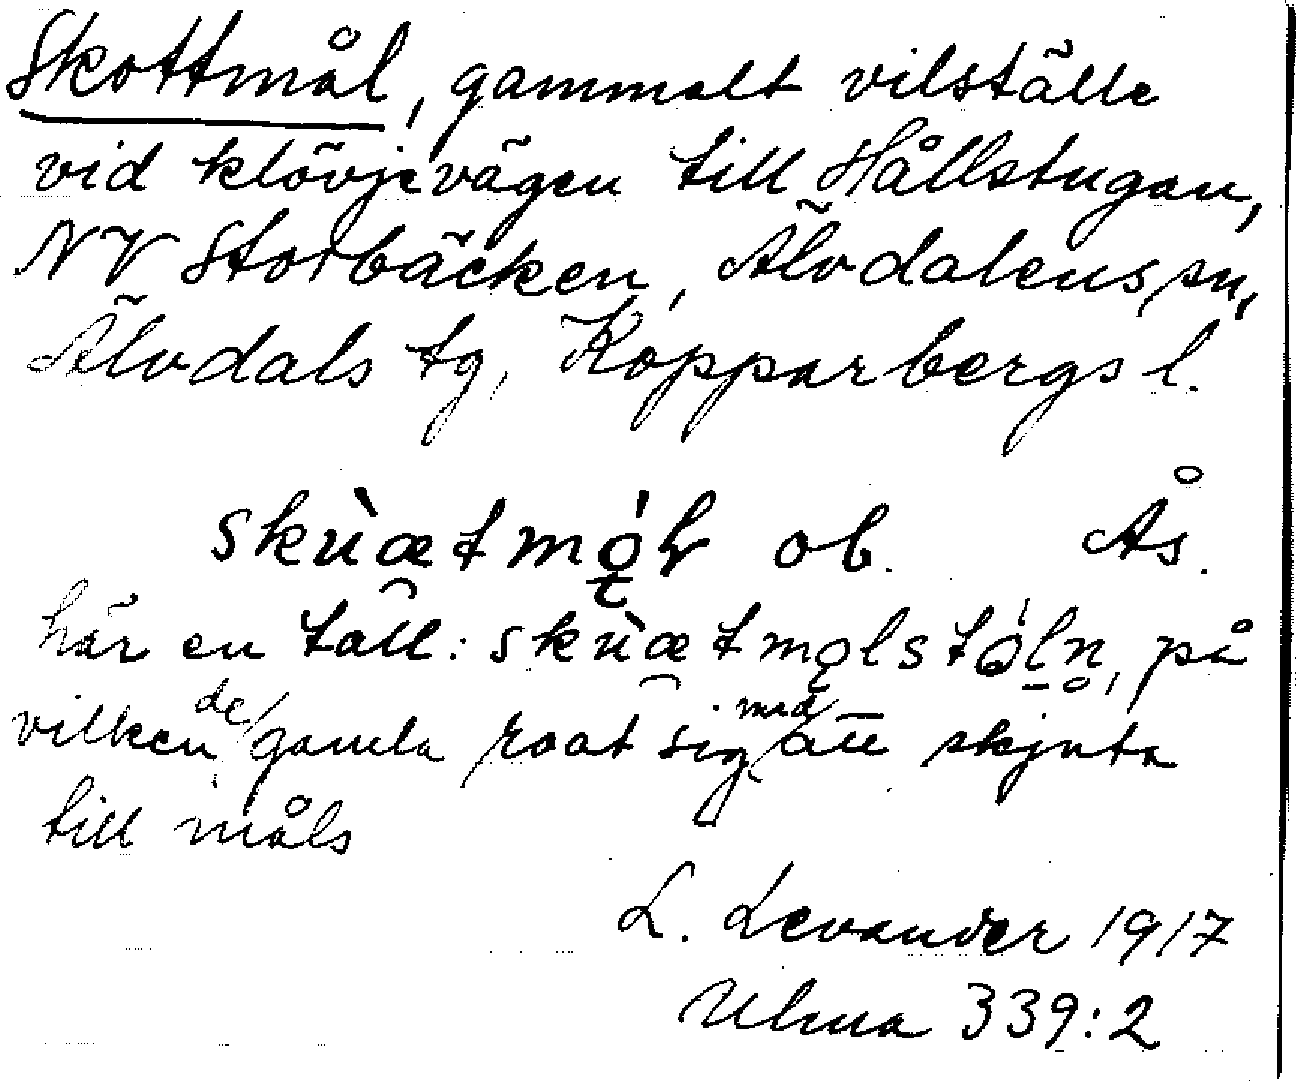 Skottmål, gammalt vilställe
vid klövjevägen till Hållstugan,
NV Storbäcken, Älvdalens sn,
Älvdals tg, Kopparbergs l.
skùætmǫ́ł ob. Ås.
här en tall: skùætmǫlstǫ́l̠n̥, på
vilken de gamla roat sig med att skjuta
till måls
L. Levander 1917
Ulma 339:2